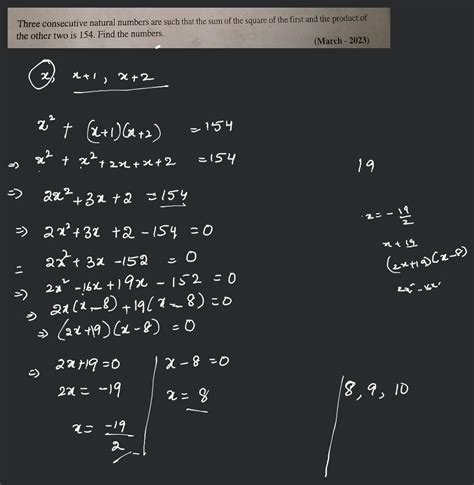 Three consecutive natural numbers are such that the sum of the square of the first and the product of
the other two is 154. Find the numbers.
(March - 2023)
x, x+1, x+2
x² + (x+1)(x+2) = 154
⇒ x² + x² + 2x + x + 2 = 154
⇒ 2x² + 3x + 2 = 154
⇒ 2x² + 3x + 2 - 154 = 0
= 2x² + 3x - 152 = 0
⇒ 2x² - 16x + 19x - 152 = 0
⇒ 2x(x-8) + 19(x-8) = 0
⇒ (2x+19)(x-8) = 0
⇒ 2x+19 = 0
2x = -19
x = -19/2
x - 8 = 0
x = 8
19
x = -19/2
x + 19
(2x+19)(x-8)
8, 9, 10